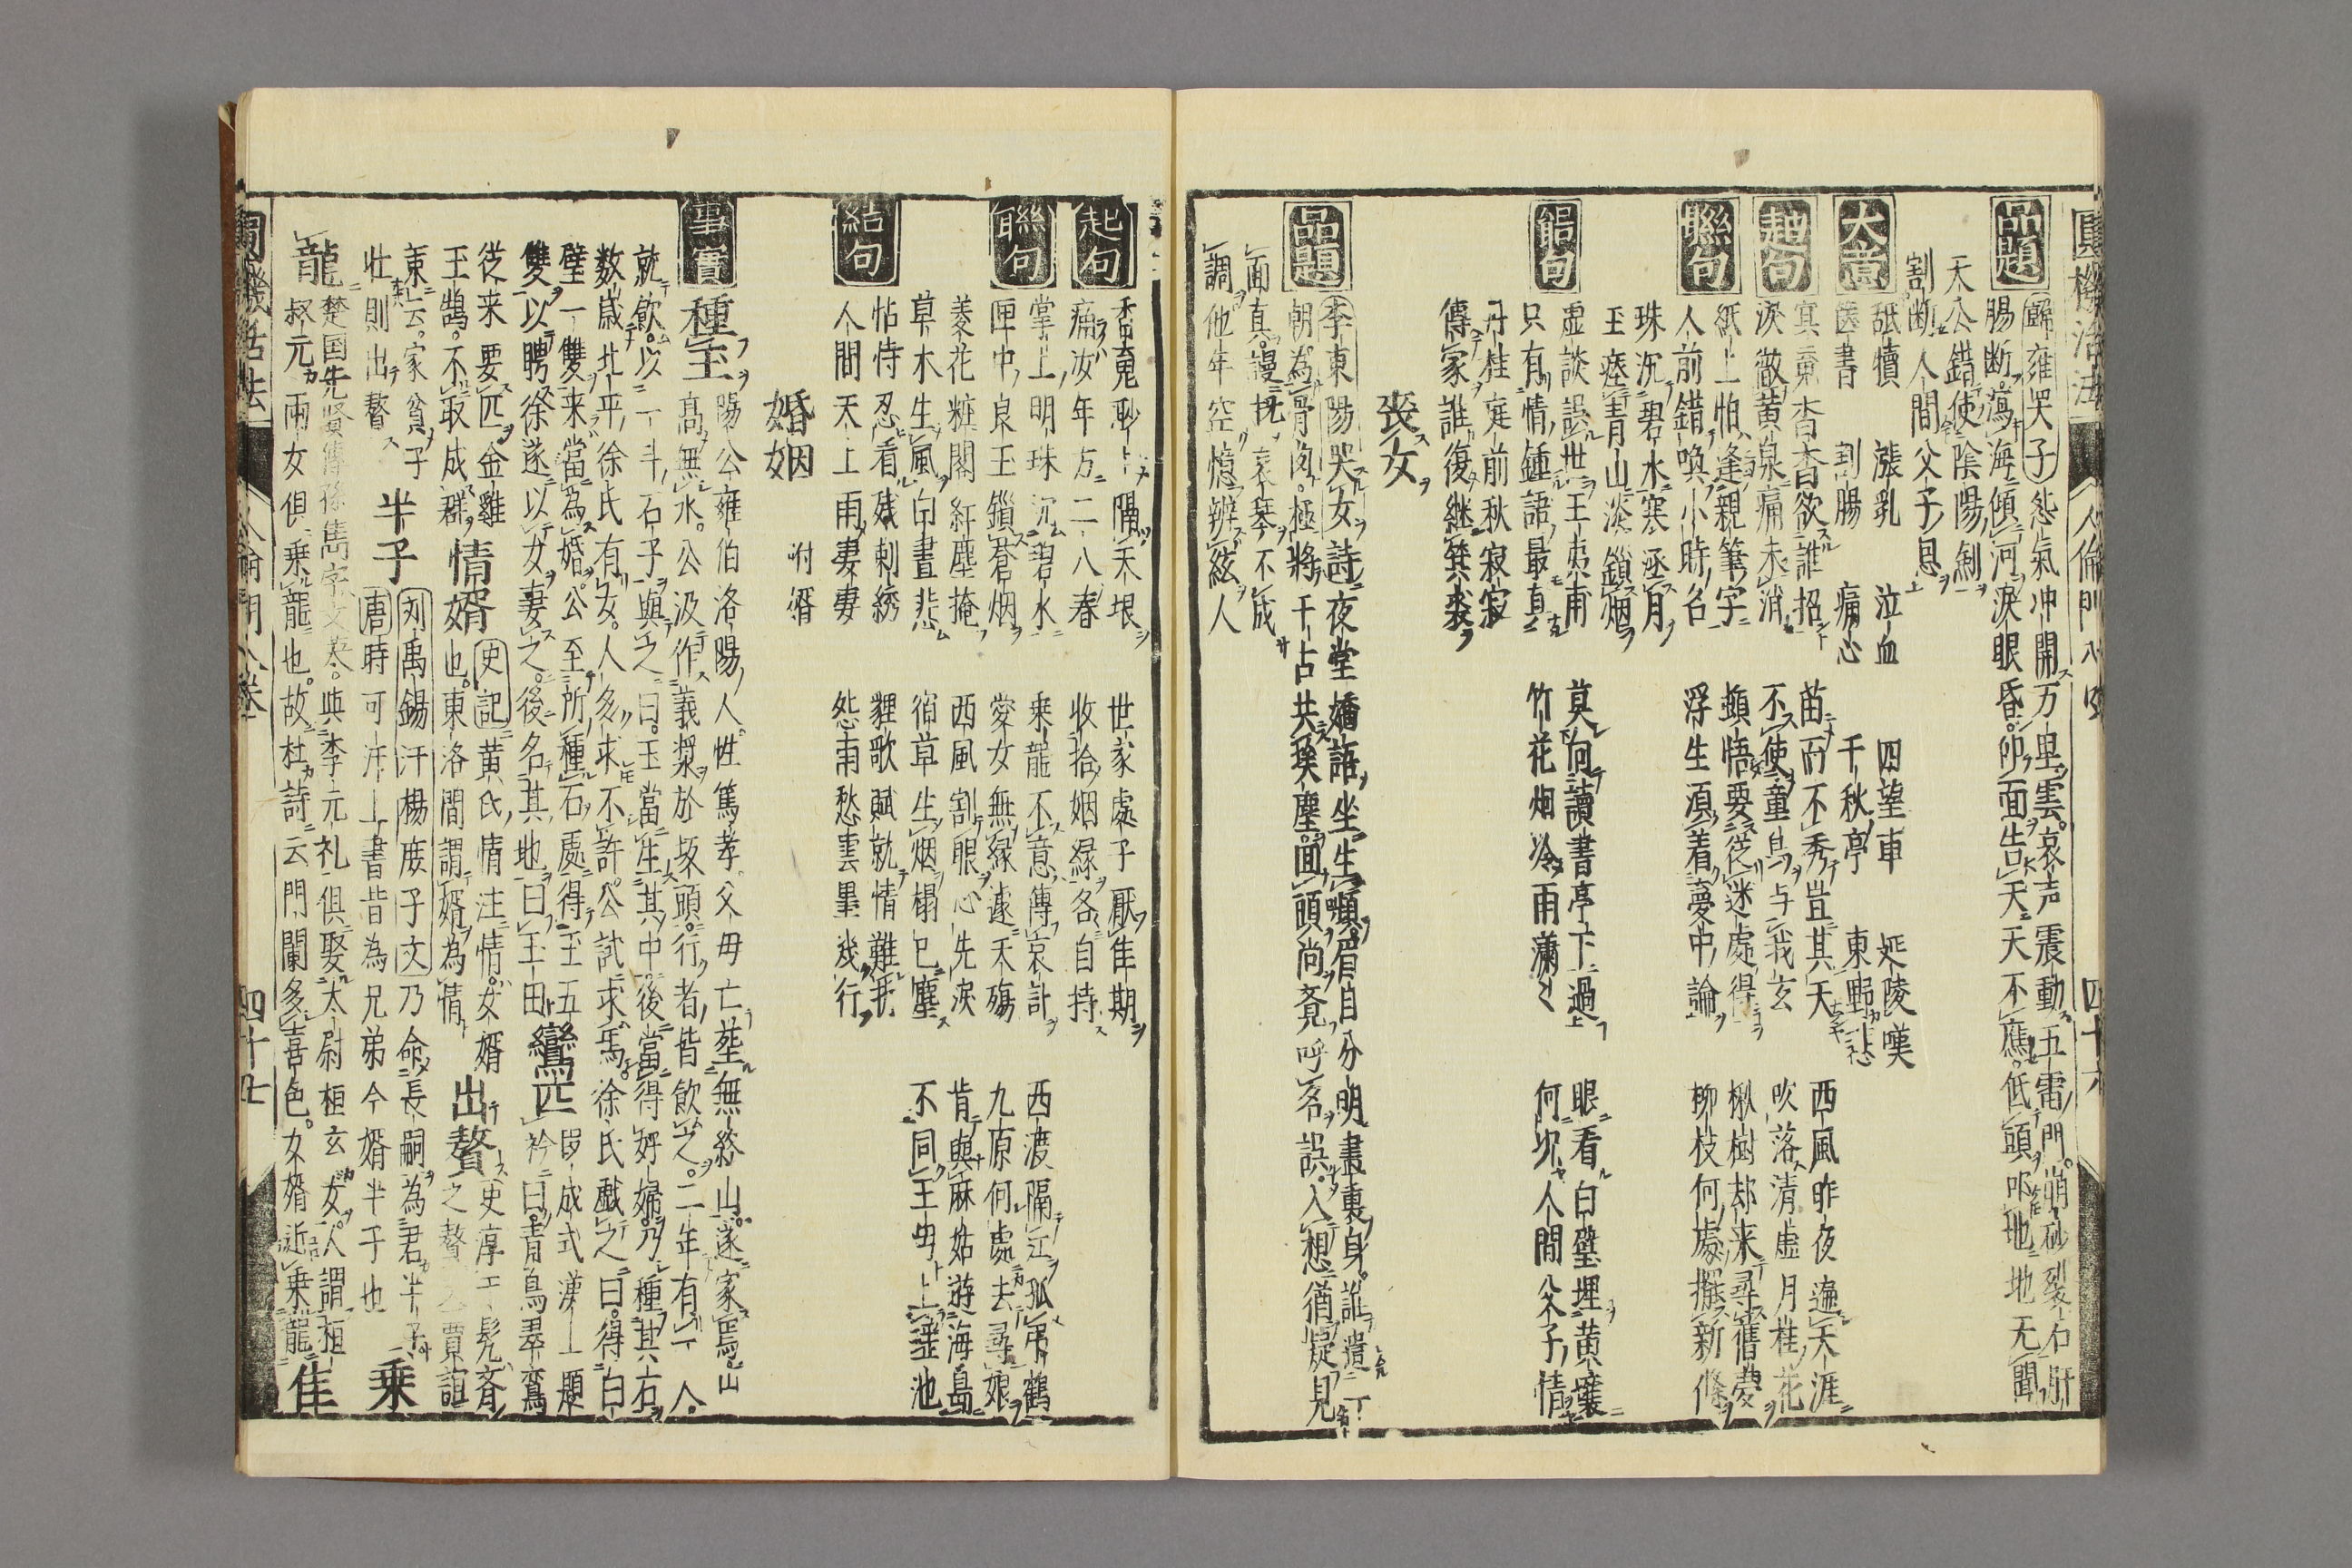 圓機活法
人倫門八巻
四十六
品題
雍哭子怨氣冲開万里雲哀声震動五雷門崩砂裂石肝
腸断蕩海傾河淚眼昏仰面告天天不應低頭叩地地无聞
天公錯使陰陽剣
割断人間父子恩
大意
舐犢 漲乳 泣血 四望車 延陵嘆
醫書 割腸 痛心 千秋亭 東野悲
起句
寞寞杳杳欲誰招 苗而不秀豈其天 西風昨夜遍天涯
淚徹黄泉痛未消 不使童烏与我玄 吹落清虚月桂花
聯句
紙上怕逢親筆字 顛悟要従迷處得 楸樹却来尋舊夢
人前錯喚小時名 浮生須着夢中論 柳枝何處擢新條
珠沉碧水寒逐月
玉瘞青山淡鎖烟
結句
虚談誤世王夷甫 莫向讀書亭下過 眼看白璧埋黄壤
只有情鍾語最真 竹花烟冷雨瀟〻 何况人間父子情
丹桂庭前秋寂寂
傳家誰復継箕裘
喪女
品題
李東陽哭女詩夜堂嬌語坐生嚬眉自分明畫裏身誰遣一丁
朝為骨肉極將千古共埃塵面頭尚覚呼名誤入想猶疑見
面真謾托哀琴不成
調他年空憶辨絃人
起句
香魂眇眇隔天垠 世家處子厭佳期
痛汝年方二八春 收拾姻緑各自持
聯句
掌上明珠沉碧水 乗龍不意傳哀計 西渡隔江孤吊鶴
匣中良玉鎖蒼烟 愛女無縁遽夭殤 九原何處去尋娘
菱花粧閣紅塵掩 西風割眼心先淚 肯與麻姑遊海島
草木生風白晝悲 宿草生烟榻已塵 不同王母上瑶池
結句
帖恃忍看残刺綉 貍歌賦就情難抚
人間天上雨妻妻 怨雨愁雲墨幾行
婚姻 附婿
事實
種玉 陽公雍伯洛陽人性篤孝父母亡塟無終山遂家焉山
高無水公汲作義漿於坂頭行者皆飲之三年有一人
就飲以一斗石子與之曰玉當生其中後當得好婦乃種其石
数歳北平徐氏有女人多求不許公試求焉徐氏戯之曰得白
璧一雙来當為婚公至所種石處得玉五
雙以聘徐遂以女妻之後名其地曰玉田 鸞匹 段成式漢上題
従来要匹金雞衿曰青鳥翠鸞
玉鵠不取成群 情婿 史記黄氏情注情女婿
也東洛間謂婿為情 出贅 史淳于髡齊
之贅 賈誼
東云家貧子
壮則出贅 半子 刘禹錫汗楊庶子文乃命長嗣為君半子
唐時可汗上書昔為兄弟今婿半子也 乗
龍 楚国先賢傳孫雋字文英與李元礼俱娶太尉桓玄女人謂桓
叔元兩女俱乗龍也故杜詩云門闌多喜色女婿近乗龍 佳
圓機活法
人倫門八巻
四十七